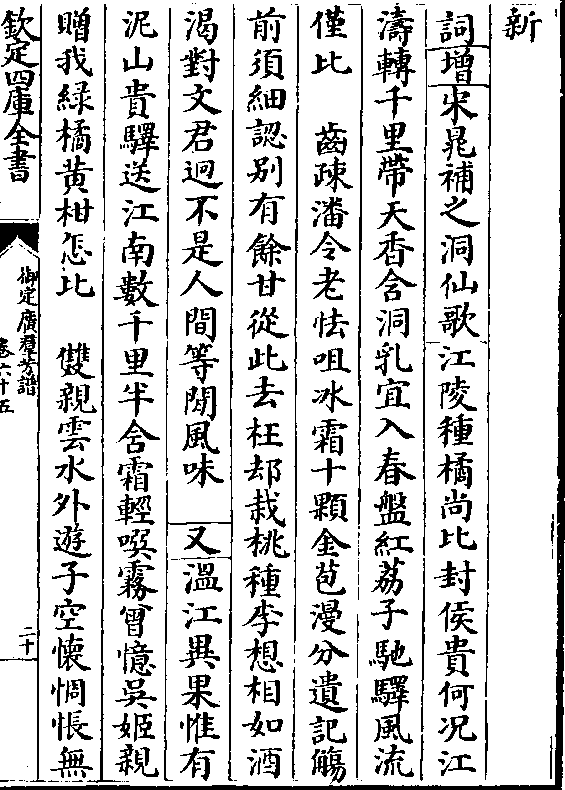 新
詞增宋晁補之洞仙歌江陵種橘尚比封侯貴何況江
濤轉千里帶天香含洞乳宜入春盤紅荔子馳驛風流
僅比　齒疎潘令老怯咀冰霜十顆金苞漫分遺記觴
前須細認别有餘甘從此去枉却栽桃種李想相如酒
渴對文君迥不是人間等閒風味　又溫江異果惟有
泥山貴驛送江南數千里半含霜輕噀霧曾憶吳姬親
贈我綠橘黃柑怎比　雙親雲水外遊子空懷惆悵無
欽定四庫全書
御定廣羣芳譜
卷六十五
二十